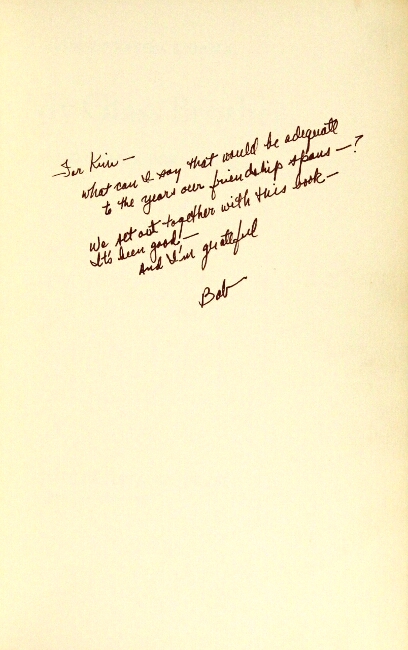 For Kim —
what can I say that would be adequate
to the years our friendship spans — ?
We set out together with this book —
It's been good —
And I'm grateful
Bob